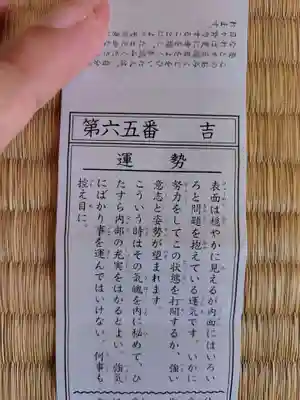 第六五番 吉
運勢
表面は穏やかに見えるが内面にはいろい
ろと問題を抱えている運気です。いかに
努力をしてこの状態を打開するか、強い
意志と姿勢が望まれます。
こういう時はその気魄を内に秘めて、ひ
たすら内部の充実をはかるとよい。強気
にばかり事を運んではいけない。何事も
控え目に。